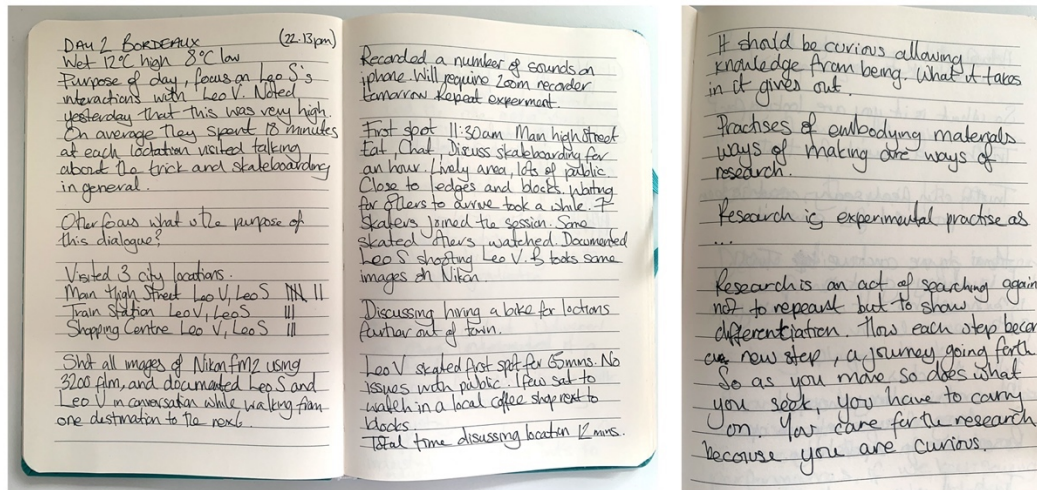 DAY 2 BORDEAUX (22.13pm)
Wet 12°C high 8°C low
Purpose of day, focus on Leo S's
interactions with Leo V. Noted
yesterday that this was very high.
On average they spent 18 minutes
at each loctation visited talking
about the trick and skateboarding
in general.
Other focus what is the purpose of
this dialogue?
Visited 3 city locations.
Main High Street Leo V, Leo S
Train Station Leo V, Leo S III
Shopping Centre Leo V, Leo S III
Shot all images of Nikon fm2 using
3200 film, and documented Leo S and
Leo V in conversation while walking from
one destination to the next.
Recorded a number of sounds on
iphone. Will require zoom recorder
tomorrow. Repeat experiment.
First spot 11:30am Man high street
Eat, Chat. Discuss skateboarding for
an hour. Lively area, lots of public.
Close to ledges and blocks. Waiting
for others to arrive took a while. 7
skaters joined the session. Some
skated others watched. Documented
Leo S shooting Leo V. tooks some
images on Nikon.
Discussing hiring a bike for loctions
further out of town.
Leo V skated first spot for 65mins. No
issues with public. I few sat to
watch in a local coffee shop next to
blocks.
Total time disussing location 12mins.
It should be curious allowing
knowledge from being. What it takes
in it gives out.
Practises of embodying materials
ways of making are ways of
research.
Research is experimental practise as
...
Research is an act of searching again
not to repeant but to show
differentiation. How each step becom
new step, a journey going forth
So as you move so does what
you seek, you have to carry
on. You care for the research
because you are curious.